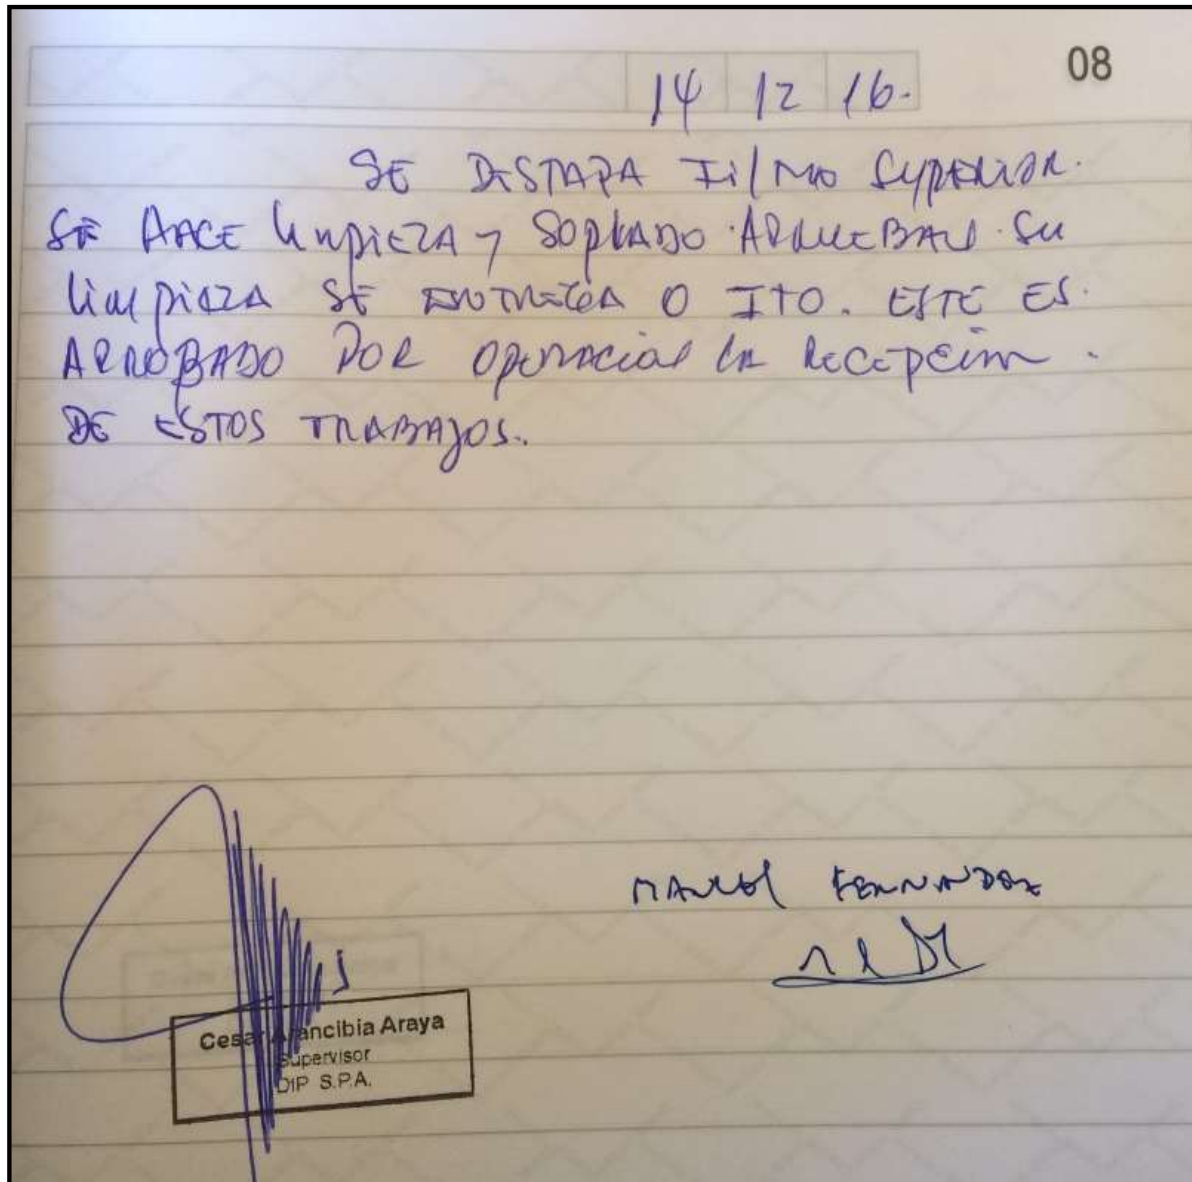 08
14 12 16.
SE DESTAPA Filtro Superior.
SE AACE limpiEZA y SOPLADO. APRUEBAN Su
limpiEZA SE ENTREGA O ITO. ESTE ES.
APROBADO POR operacion la Recepción.
DE ESTOS TRABAJOS.
MANUEL FERNANDEZ
Cesar Arancibia Araya
Supervisor
DIP S.P.A.